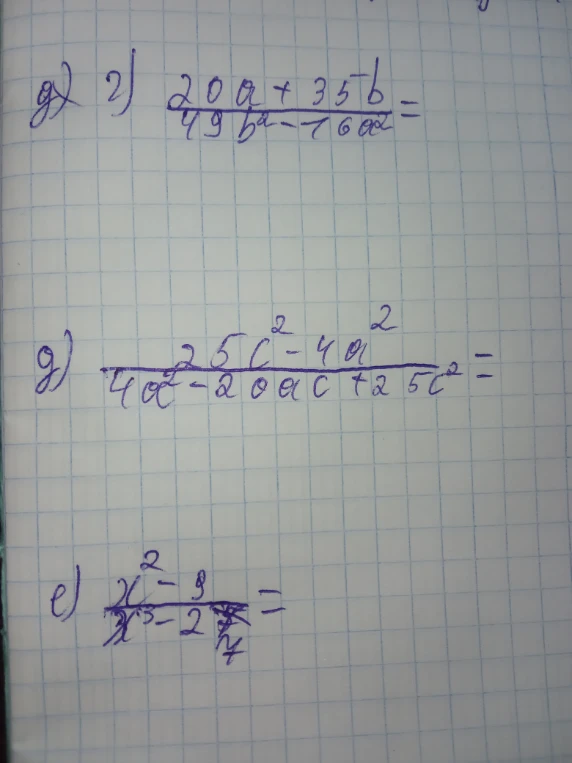 д) г) 20a + 35b
49b² - 16a² =
д) 25c² - 4a²
4a² - 20ac + 25c² =
е) x² - 9
x³ - 27 =